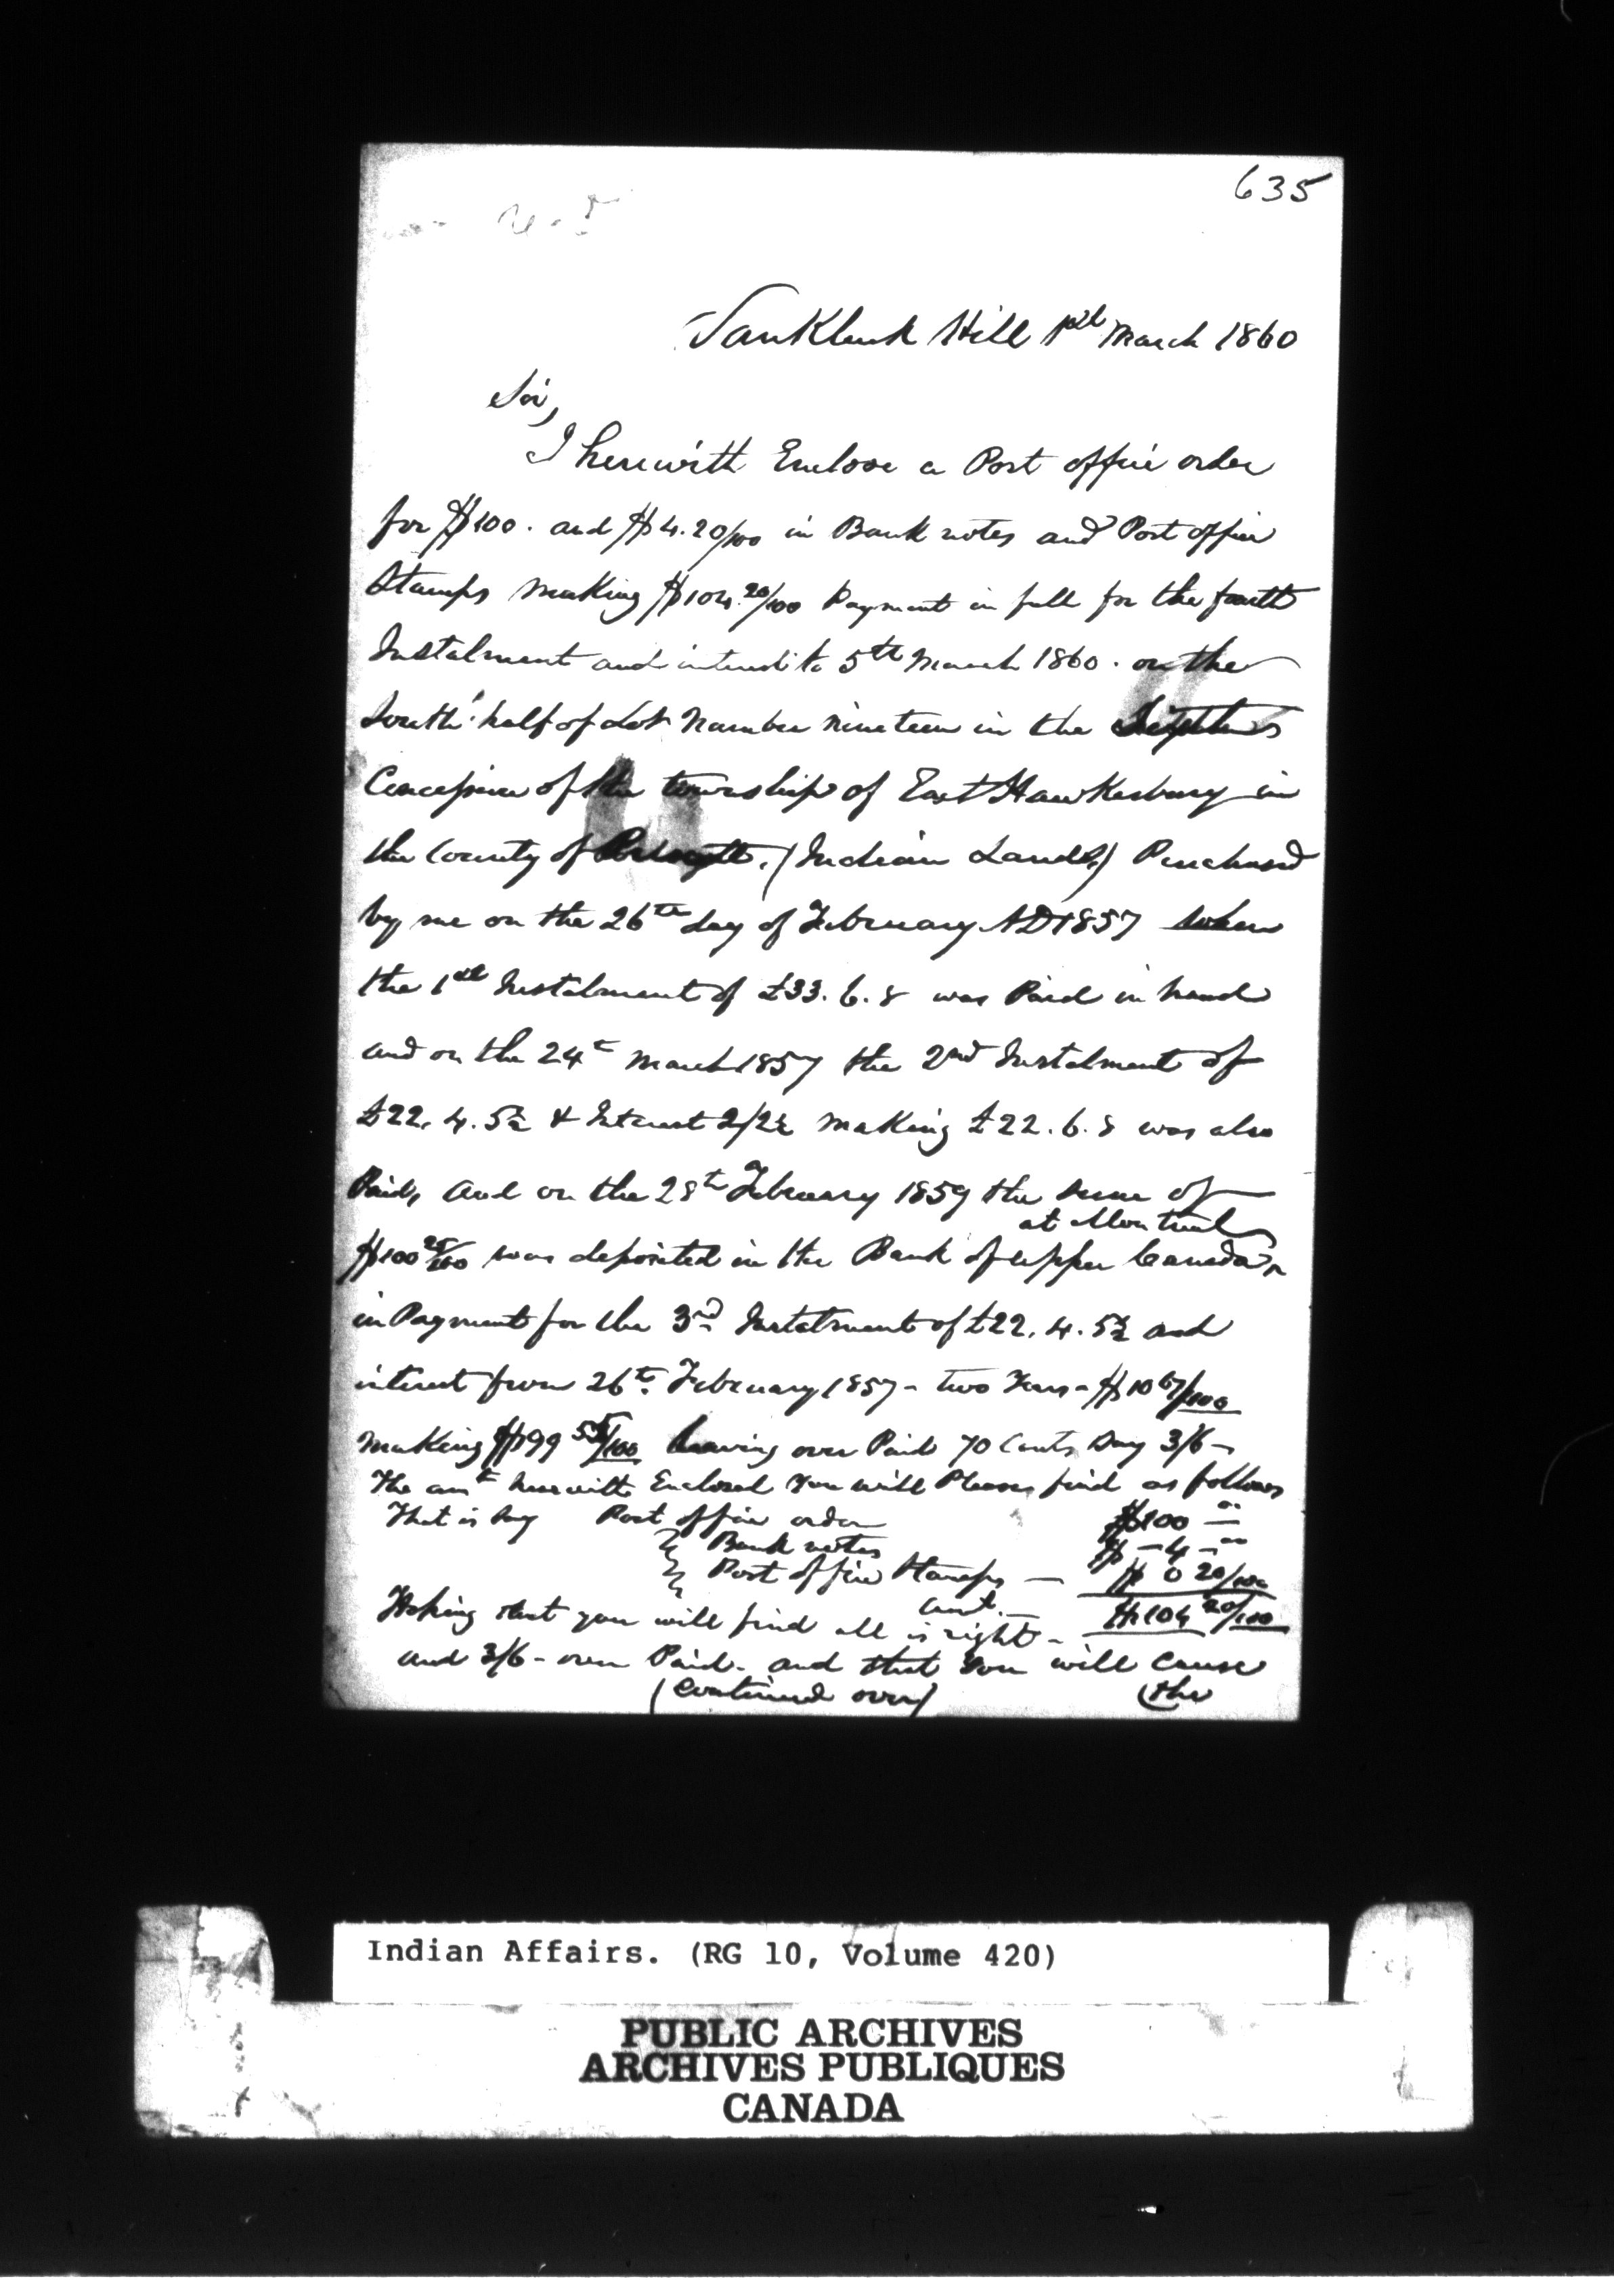 635
VanKleek Hill 1st March 1860
Sir,
I herewith Enclose a Post office order
for $100. and $4.20/100 in Bank notes and Post office
Stamps making $104.20/100 Payment in full for the fourth
Instalment and interest to 5th March 1860. on the
South half of Lot number nineteen in the
Concession of the township of East Hawkesbury in
the County of Prescott, (Indian Lands) Purchased
by me on the 26th day of February AD 1857 when
the 1st Instalment of £33.6.8 was Paid in hand
and on the 24th March 1857 the 2nd Instalment of
£22.4.5½ & Interest 2/2½ making £22.6.8 was also
Paid, and on the 28th February 1859 the sum of
at Montreal
$100 25/100 was deposited in the Bank of Upper Canada ^
in Payment for the 3rd Instalment of £22.4.5½ and
interest from 26th February 1857 - two Years - $10 67/100
making $99 55/100 leaving over Paid 70 Cents Say 3/6 -
The amt herewith Enclosed You will Please find as follows
That is Say Post office order $100 —
Bank notes $ - 4 -
Post office Stamps — $ 0 20/100
amt. — $104 20/100
Hoping that you will find all is right -
and 3/6 - over Paid - and that You will cause
(Continued over) (the
Indian Affairs. (RG 10, Volume 420)
PUBLIC ARCHIVES
ARCHIVES PUBLIQUES
CANADA